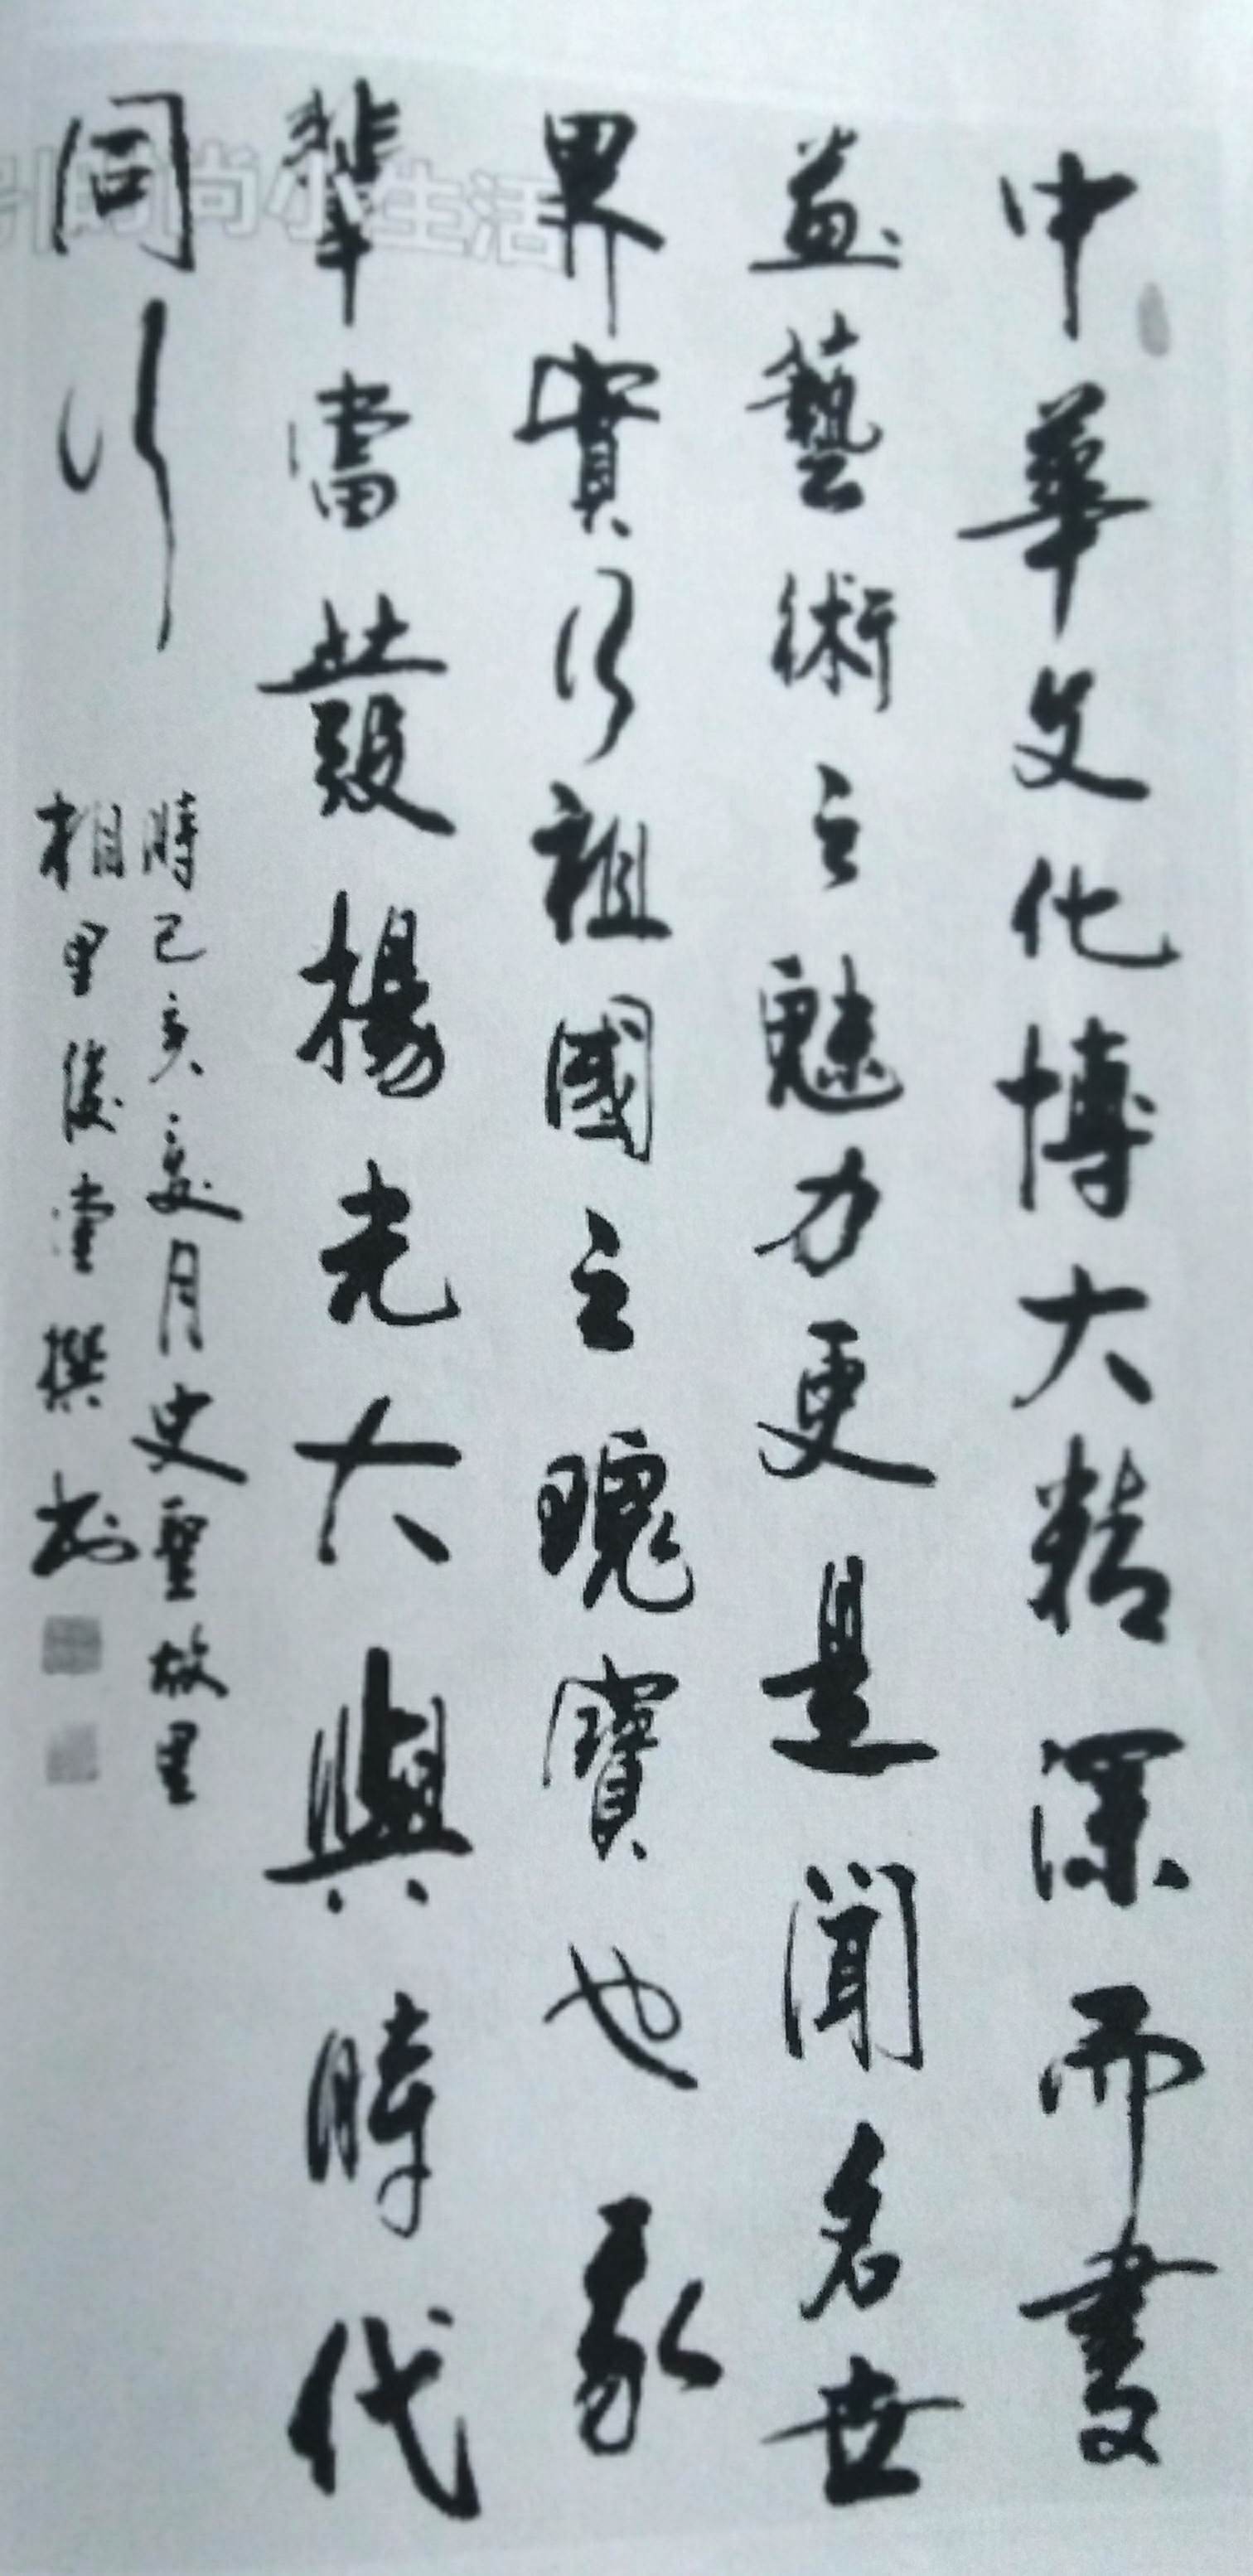 中華文化博大精深而書
画藝術之魅力更是聞名世
界實乃祖國之瑰寶也我
輩當發揚光大與時代
同行
時己亥夏月史聖故里
相里俊堂撰書
时尚小生活